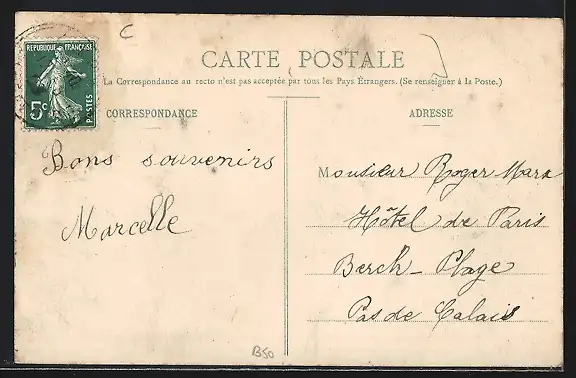 C
CARTE POSTALE
REPUBLIQUE FRANÇAISE
5c
POSTES
La Correspondance au recto n'est pas acceptée par tous les Pays Étrangers. (Se renseigner à la Poste.)
CORRESPONDANCE
Bons souvenirs
Marcelle
B50
ADRESSE
Monsieur Roger Marx
Hôtel de Paris
Berck-Plage
Pas de Calais